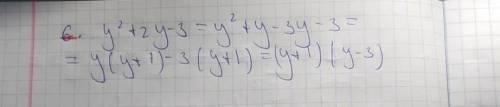 6. y² + 2y - 3 = y² + y - 3y - 3 =
= y(y+1) - 3(y+1) = (y+1)(y-3)